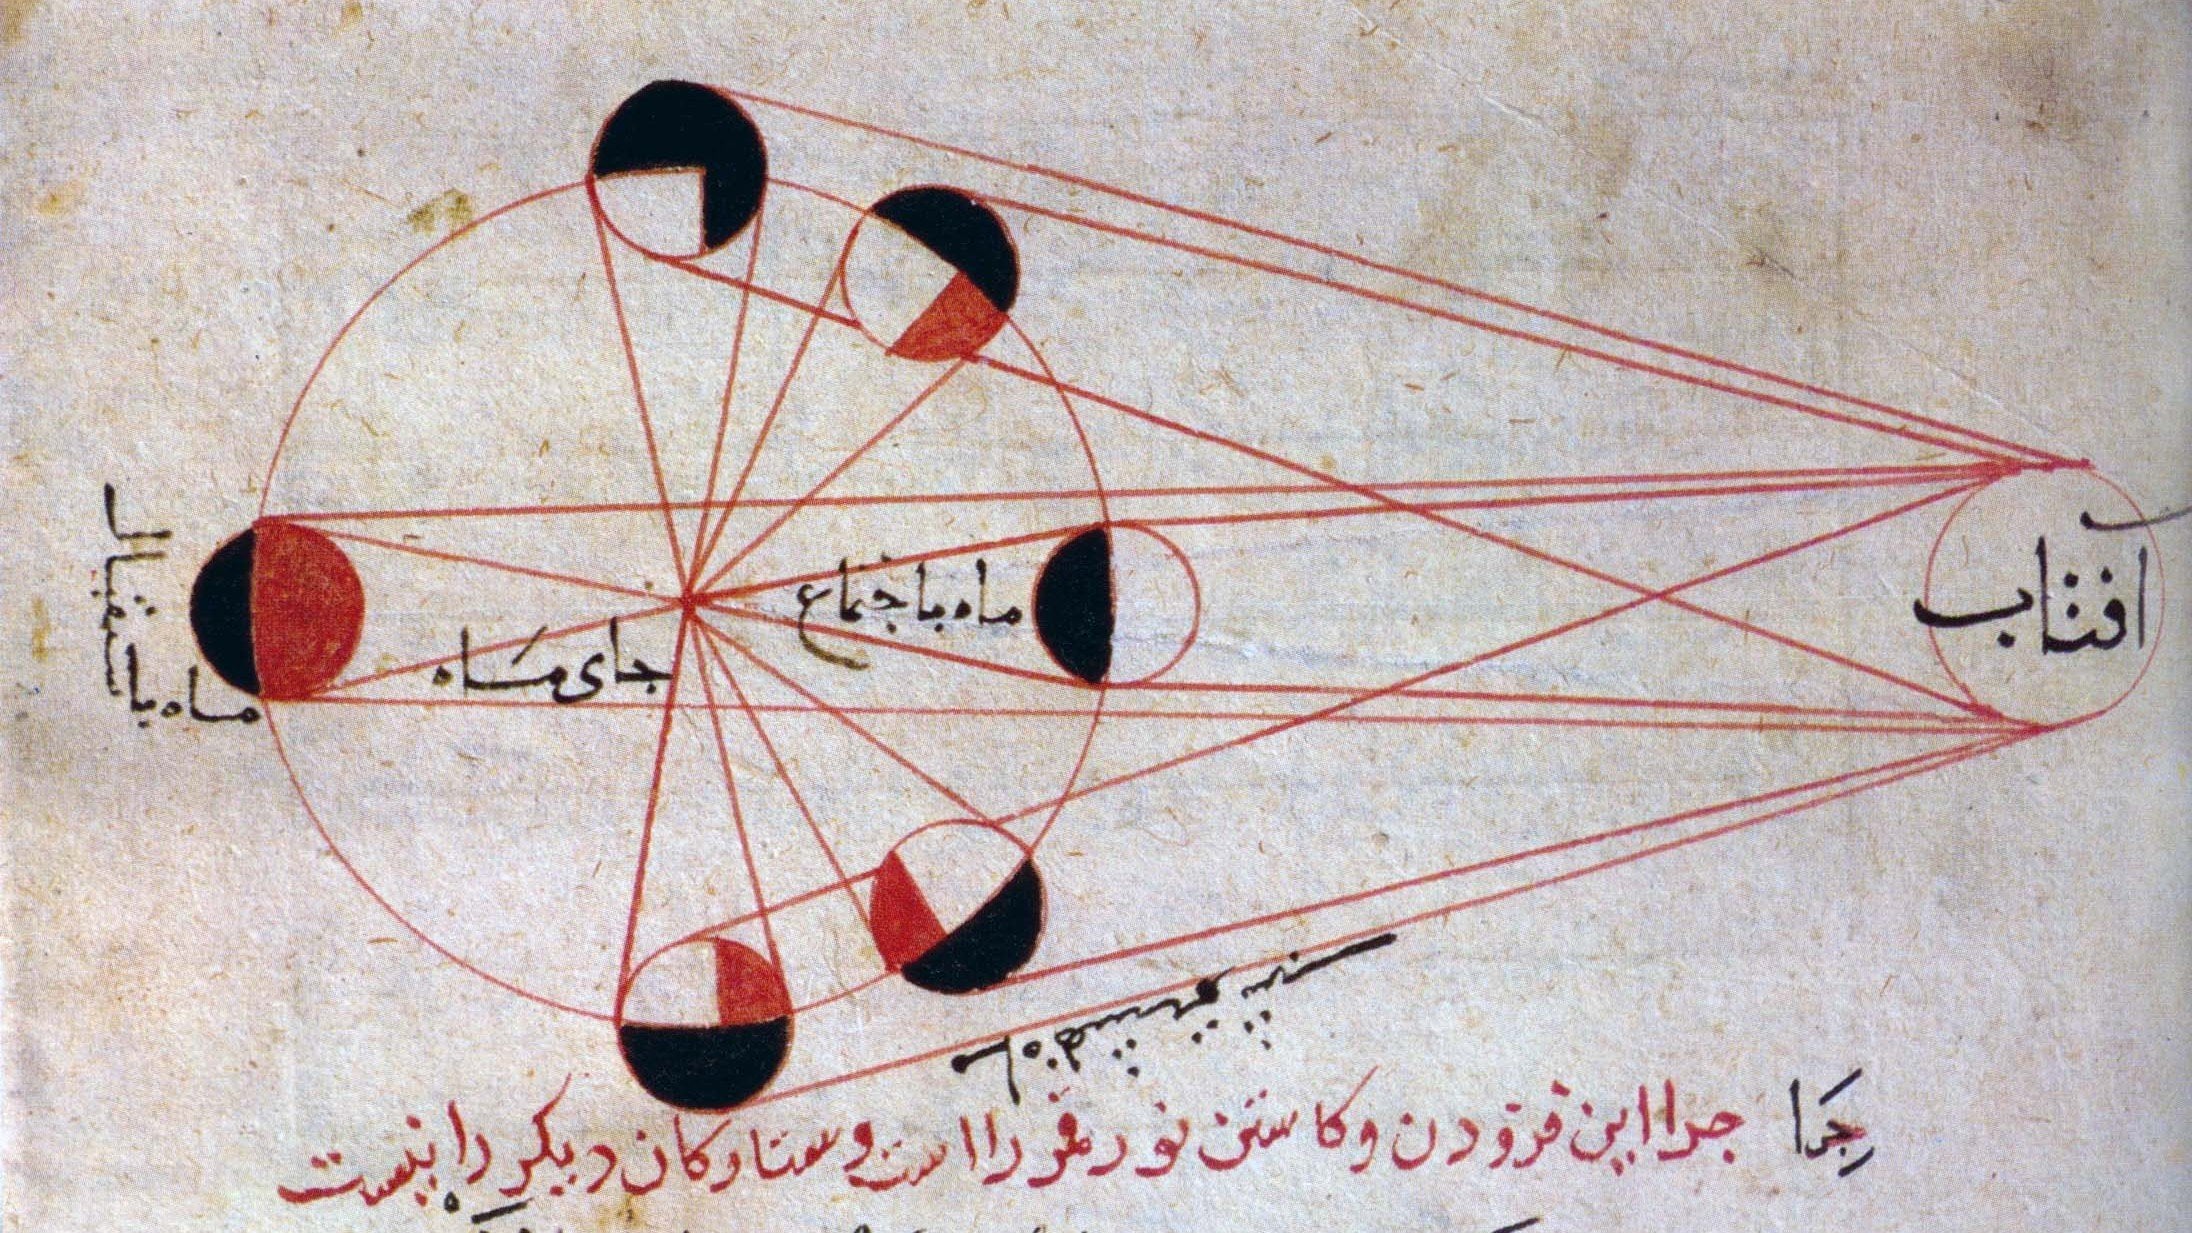 آفتاب
ماه باجتماع
جای ماه
ماه باستقبال
چرا
چرا این فزودن و کاستن نور قمر را است و ستارکان دیکر را نیست